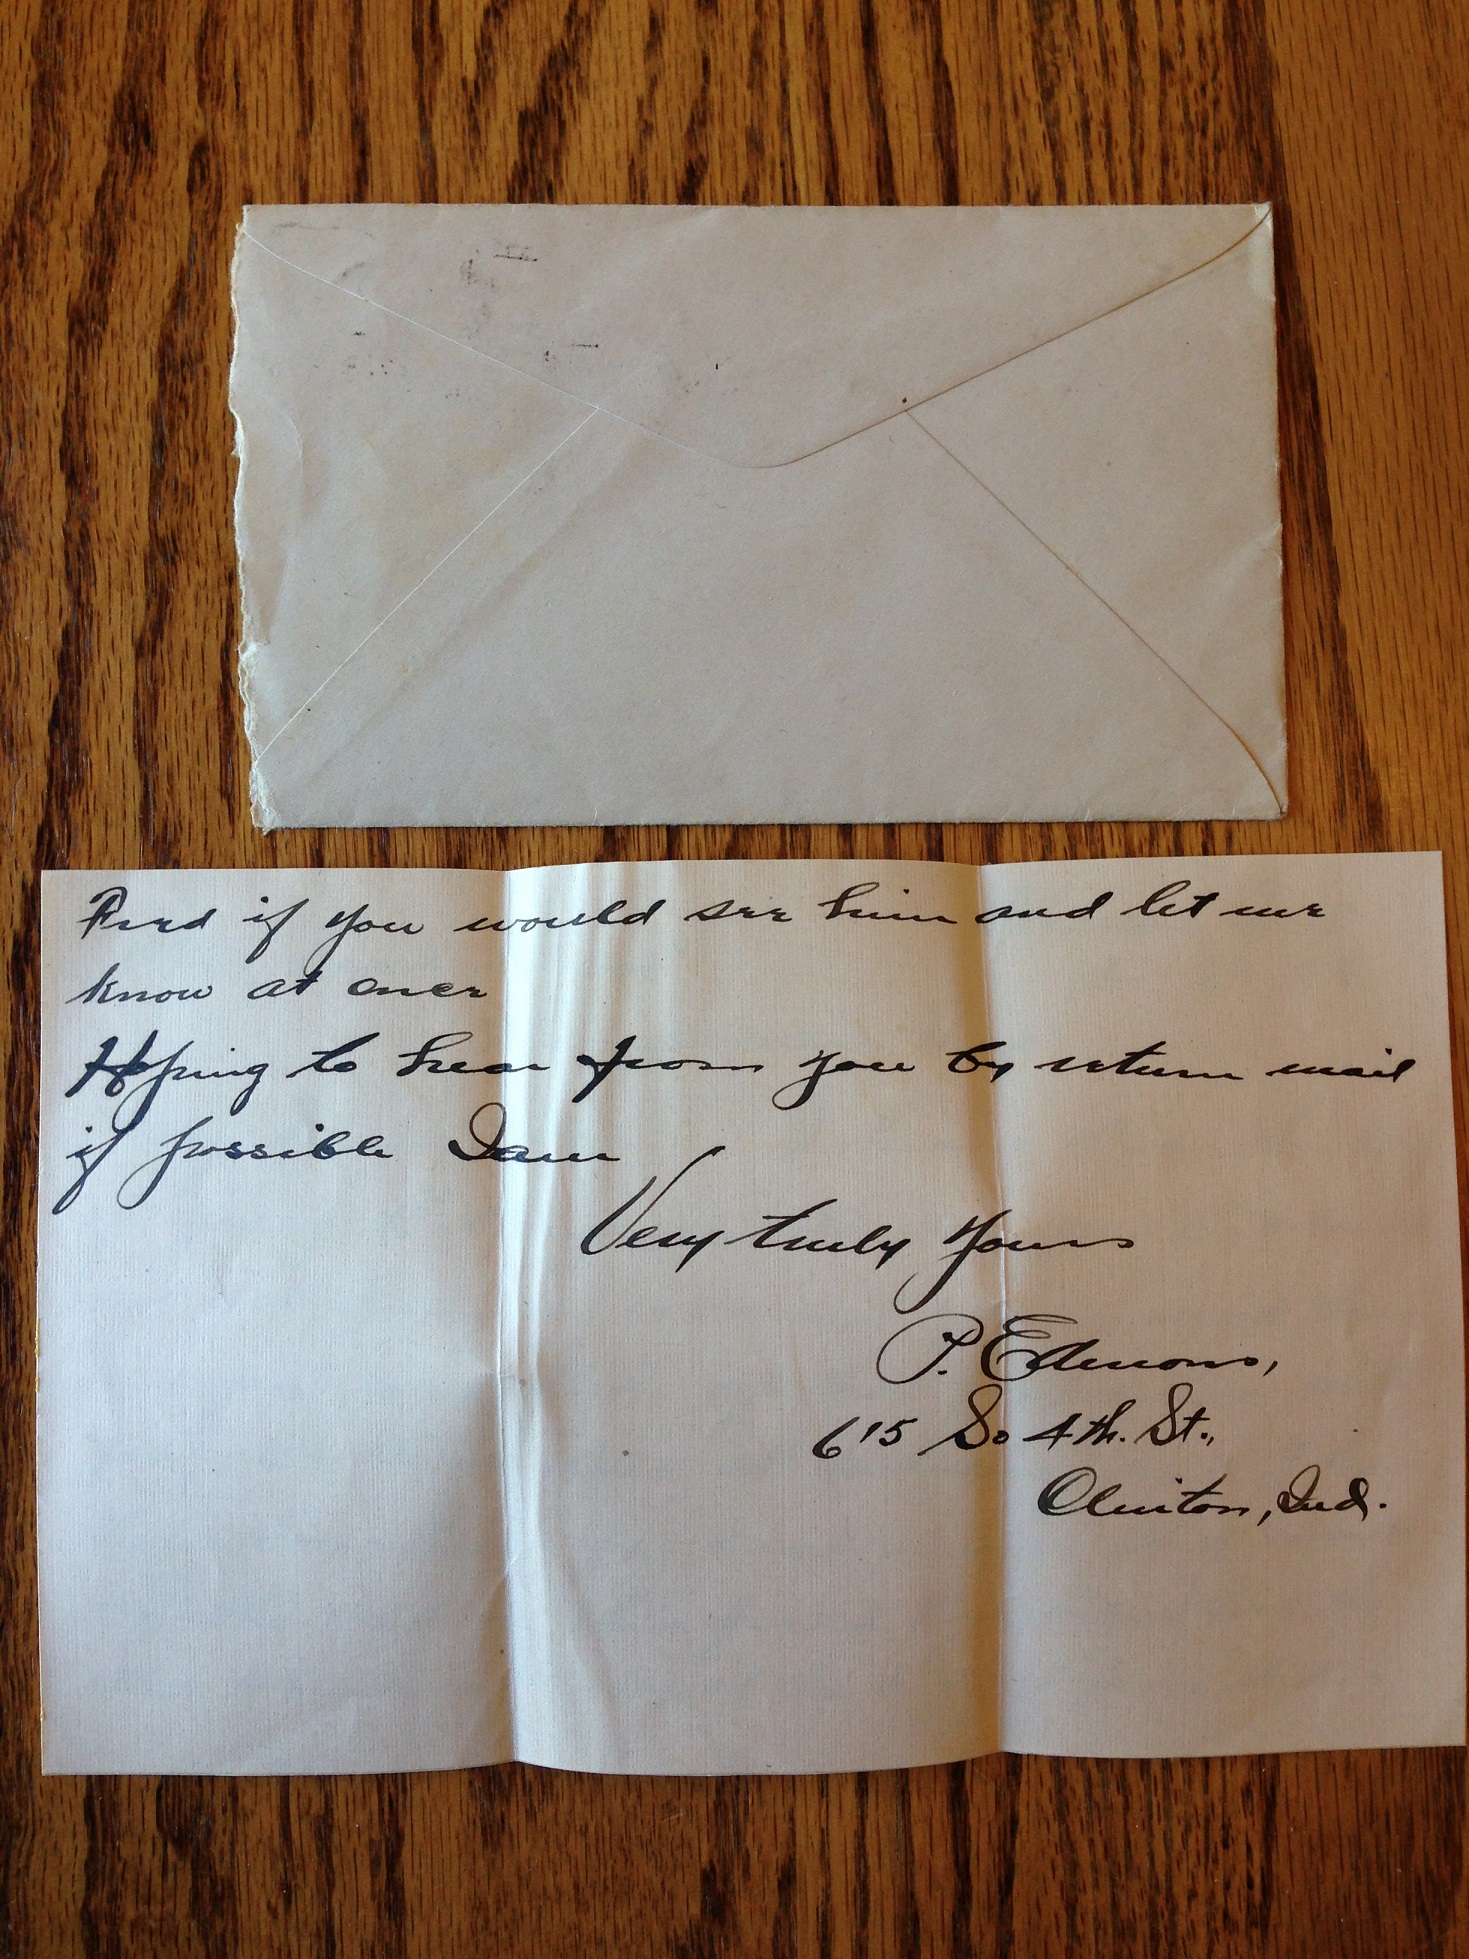 Fred if you would see him and let me
know at once
Hoping to hear from you by return mail
if possible I am
Very truly yours
P. Edmons,
615 So 4th. St.,
Clinton, Ind.